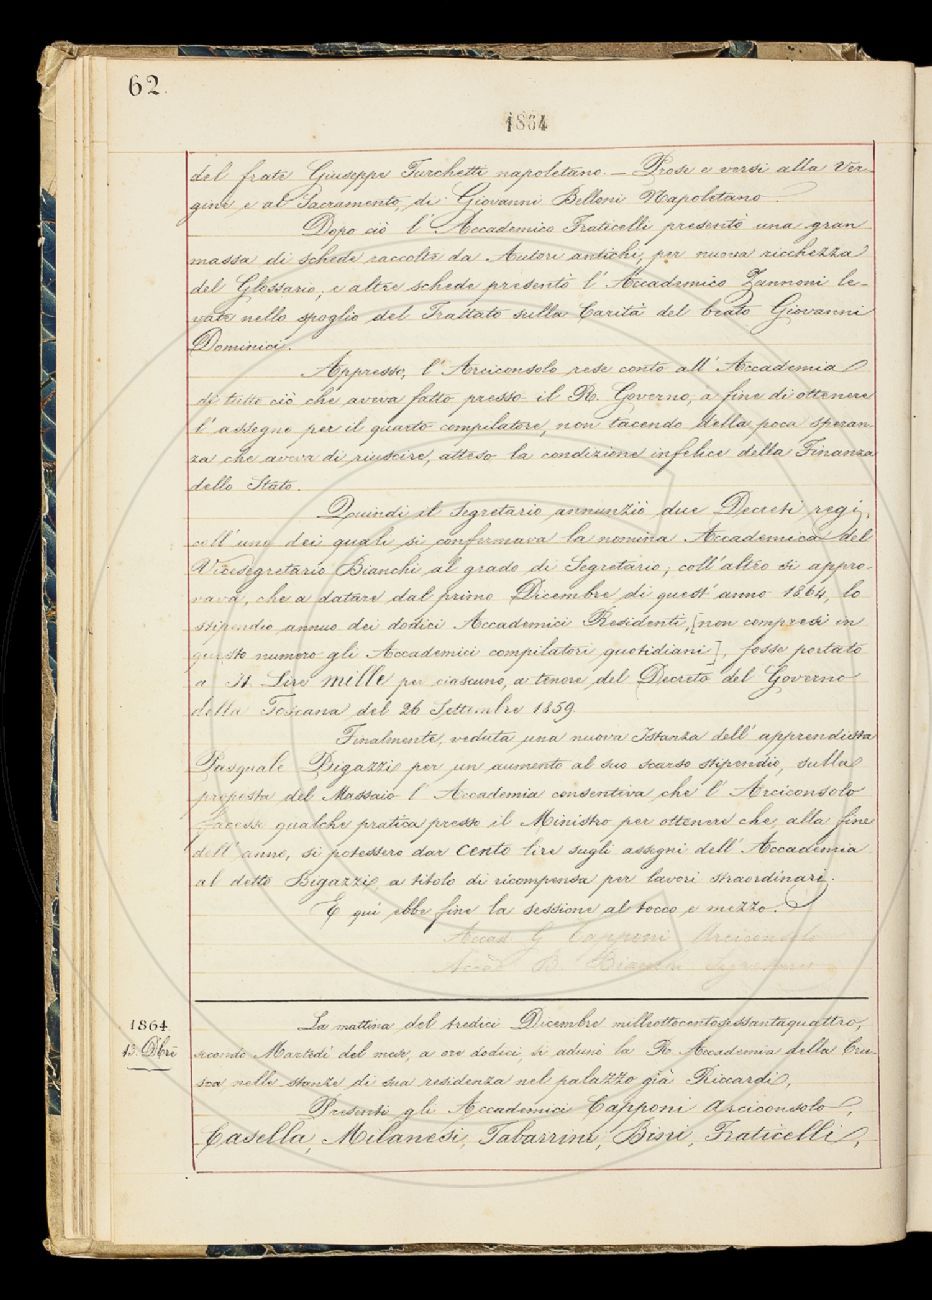 62.
1864
del frate Giuseppe Turchetti napoletano. — Prose e versi alla Ver-
gine e al Sacramento, di Giovanni Belloni Napoletano.
Dopo ciò l'Accademico Fraticelli presentò una gran
massa di schede raccolte da Autori antichi, per nuova ricchezza
del Glossario; e altre schede presentò l'Accademico Zannoni le-
vate nello spoglio del Trattato sulla Carità del beato Giovanni
Dominici.
Appresso, l'Arciconsolo rese conto all'Accademia
di tutto ciò che aveva fatto presso il R. Governo, a fine di ottenere
l'assegno per il quarto compilatore, non tacendo della poca speran-
za che aveva di riuscire, atteso la condizione infelice della Finanza
dello Stato.
Quindi il Segretario annunziò due Decreti regi,
coll'uno dei quali si confermava la nomina Accademica del
Vicesegretario Bianchi al grado di Segretario; coll'altro si appro-
vava, che a datare dal primo Dicembre di quest'anno 1864, lo
stipendio annuo dei dodici Accademici Residenti, [non compresi in
questo numero gli Accademici compilatori quotidiani], fosse portato
a It. Lire mille per ciascuno, a tenore del Decreto del Governo
della Toscana del 26 Settembre 1859.
Finalmente, veduta una nuova Istanza dell'apprendista
Pasquale Bigazzi per un aumento al suo scarso stipendio, sulla
proposta del Massaio l'Accademia consentiva che l'Arciconsolo
facesse qualche pratica presso il Ministro per ottenere che, alla fine
dell'anno, si potessero dar cento lire sugli assegni dell'Accademia
al detto Bigazzi, a titolo di ricompensa per lavori straordinari.
E qui ebbe fine la sessione al tocco e mezzo.
Accad. G. Capponi Arciconsolo
Accad. B. Bianchi Segretario
1864.
13. Dbre
La mattina del tredici Dicembre milleottocentosessantaquattro,
secondo Martedì del mese, a ore dodici, si adunò la R. Accademia della Cru-
sca nelle stanze di sua residenza nel palazzo già Riccardi,
Presenti gli Accademici Capponi Arciconsolo,
Casella, Milanesi, Tabarrini, Bini, Fraticelli,